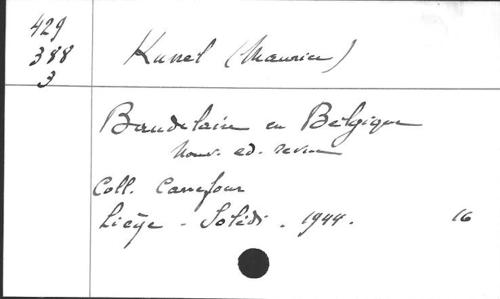 429
388
3
Kunel (Maurice)
Baudelaire en Belgique
Nouv. ed. revue
Coll. Carrefour
Liège - Solédi. 1944. 16